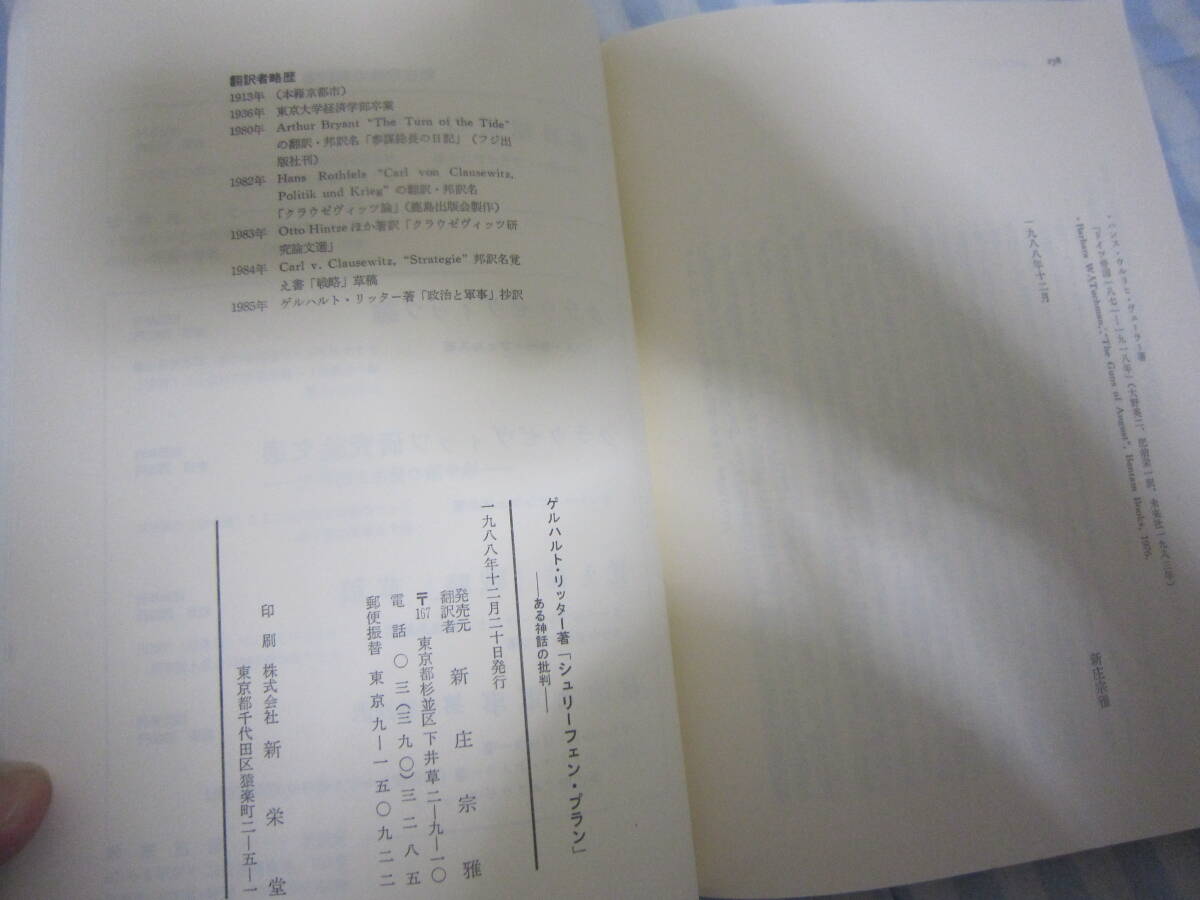 258
・ハンス・ウルリヒ・ヴェーラー著
『ドイツ帝国一八七一―一九一八年』(大野英二、肥前栄一訳、未来社一九八三年)
・Barbara W. Tuchman; "The Guns of August", Bantam Books, 1976.
一九八八年十二月
新庄宗雅
翻訳者略歴
1913年 (本籍京都市)
1936年 東京大学経済学部卒業
1980年 Arthur Bryant "The Turn of the Tide"
の翻訳・邦訳名「参謀総長の日記」(フジ出
版社刊)
1982年 Hans Rothfels "Carl von Clausewitz,
Politik und Krieg" の翻訳・邦訳名
「クラウゼヴィッツ論」(鹿島出版会製作)
1983年 Otto Hintze ほか著訳「クラウゼヴィッツ研
究論文選」
1984年 Carl v. Clausewitz, "Strategie" 邦訳名覚
え書「戦略」草稿
1985年 ゲルハルト・リッター著「政治と軍事」抄訳
ゲルハルト・リッター著「シュリーフェン・プラン」
―ある神話の批判―
一九八八年十二月二十日発行
発売元
翻訳者 新庄宗雅
〒167 東京都杉並区下井草二―九―一〇
電話 〇三(三九〇)三二八五
郵便振替 東京九―一五〇九二二
印刷 株式会社 新栄堂
東京都千代田区猿楽町二―五―一